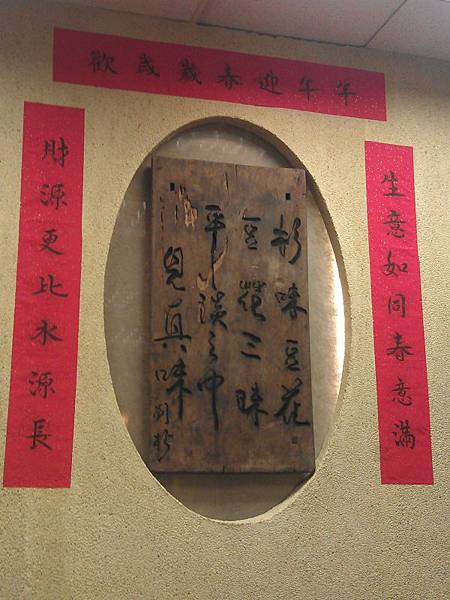 年年迎春歲歲歡
生意如同春意滿
味豆花
豆花三味
平淡之中
見真味
財源更比水源長